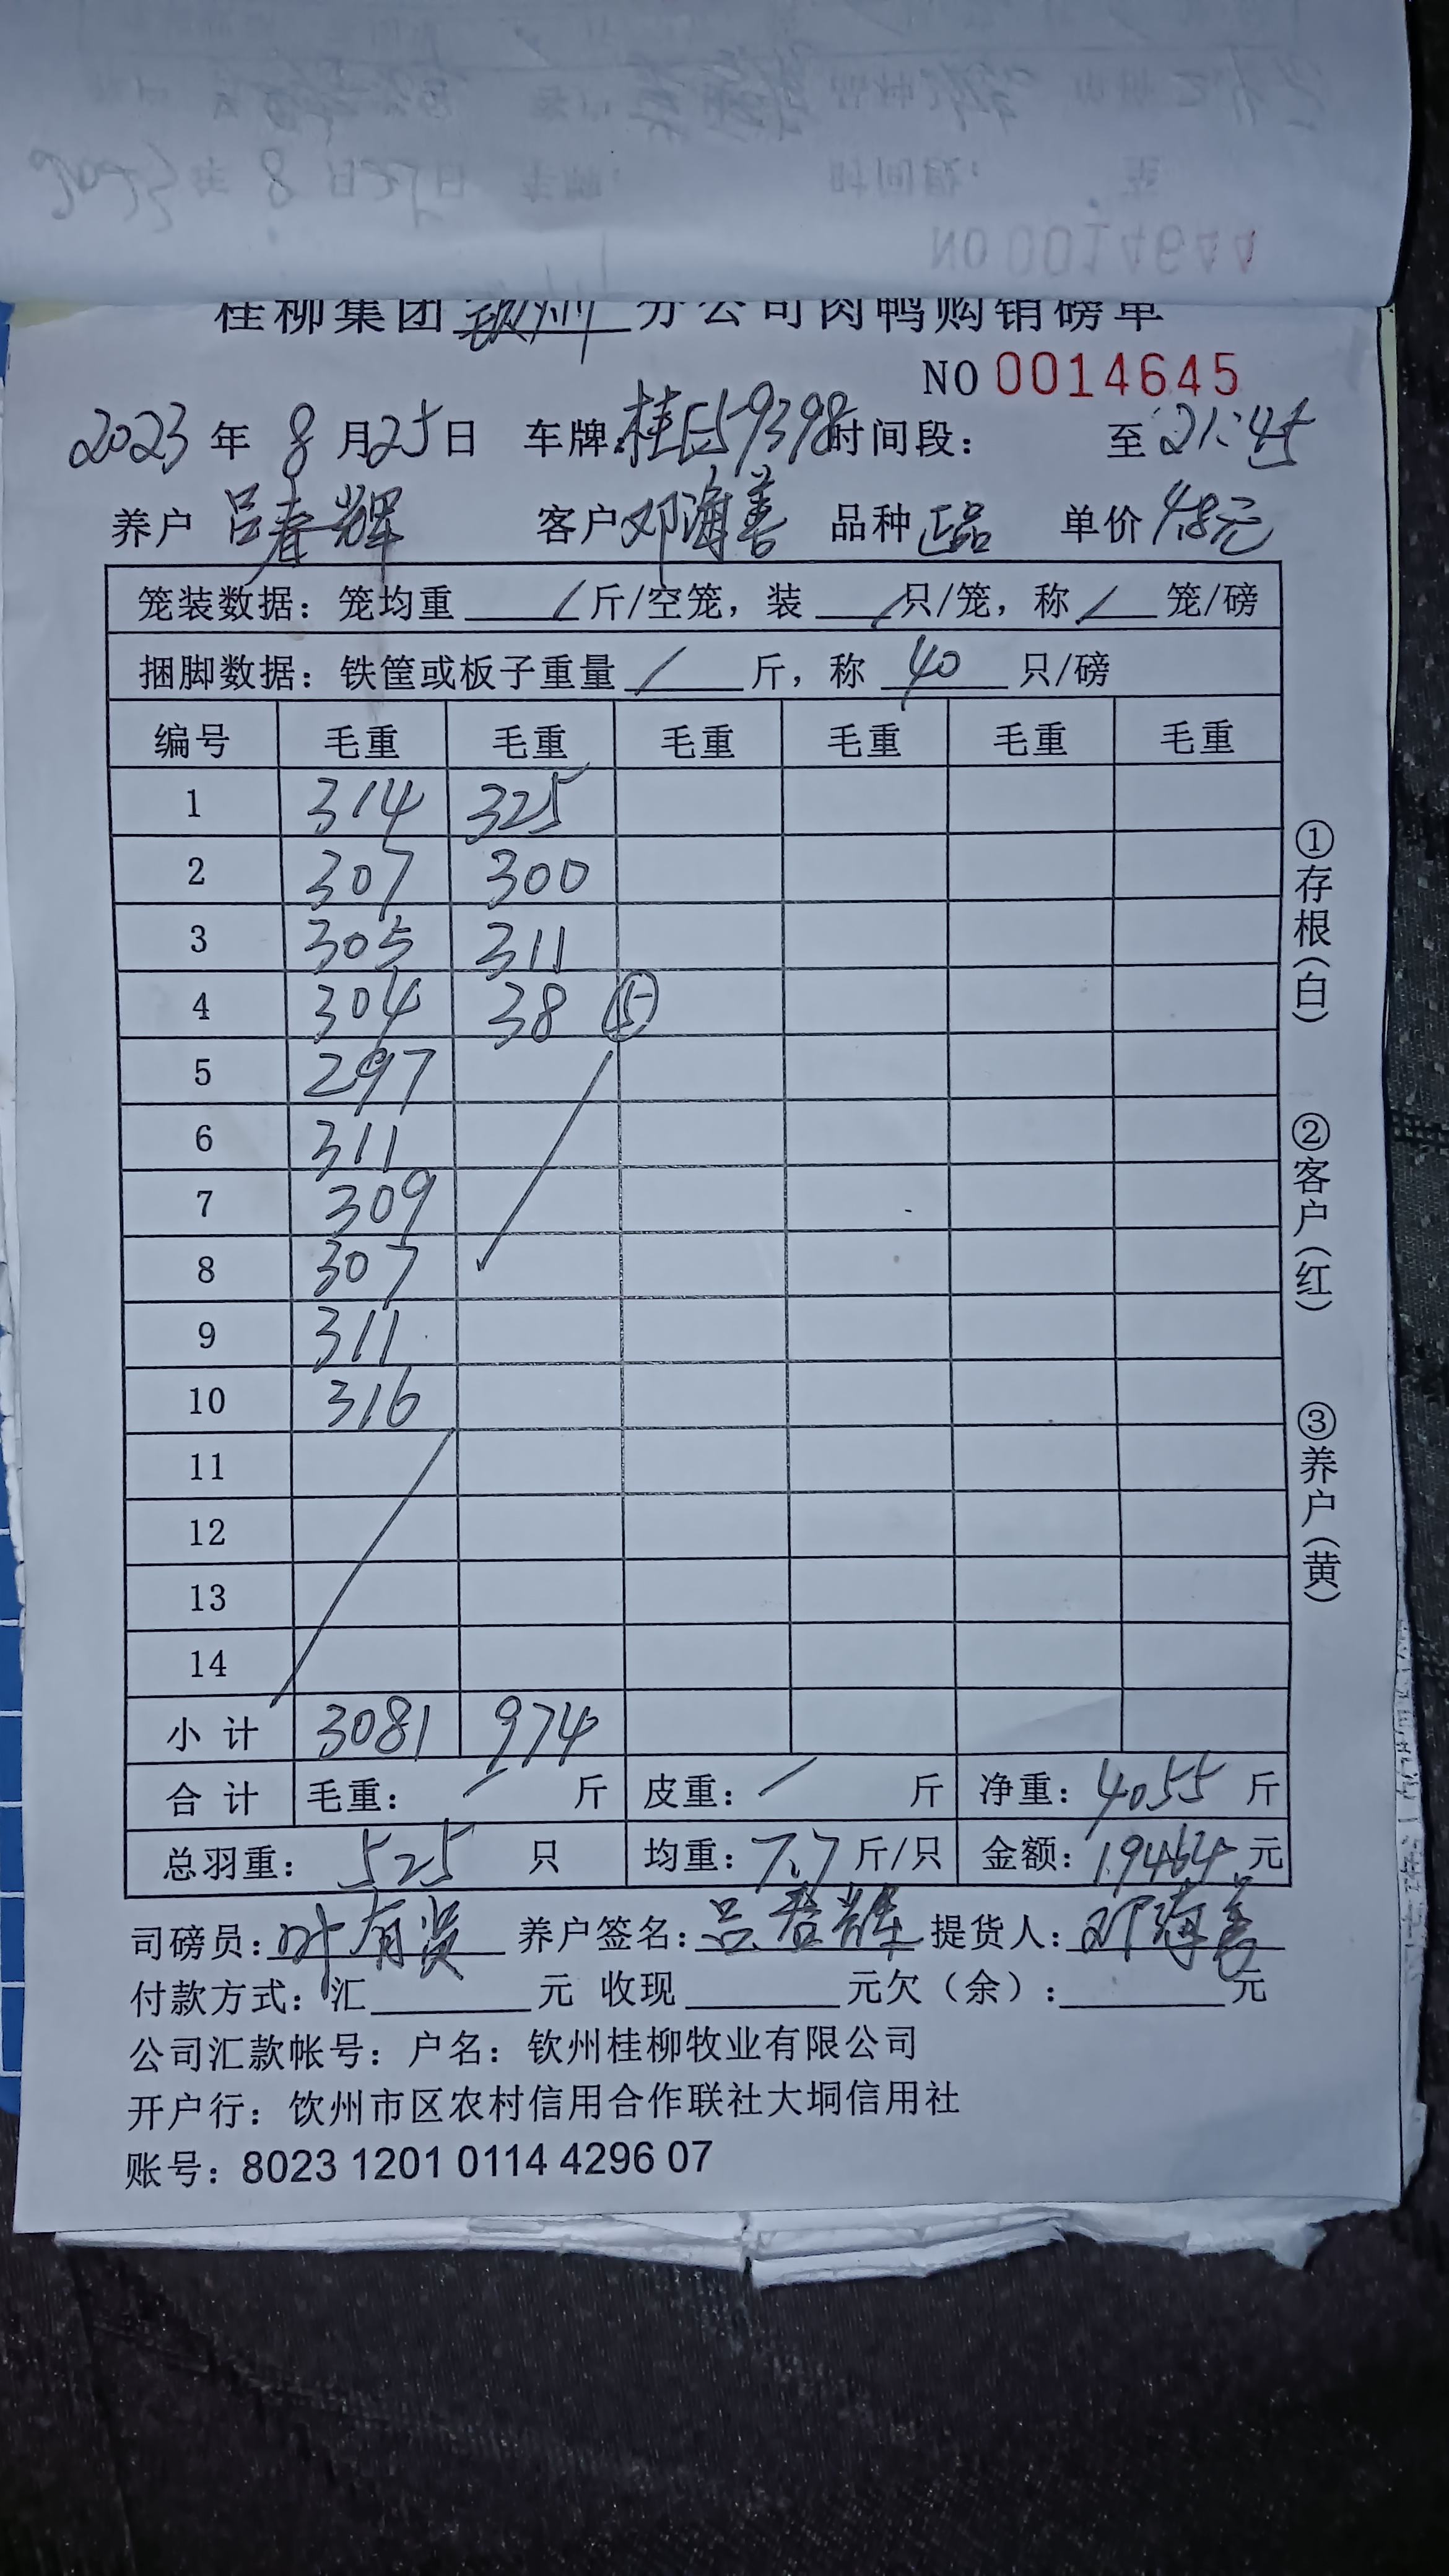 桂柳集团钦州分公司肉鸭购销磅单
NO 0014645
2023年8月25日 车牌: 时间段: 至21:45
养户 吕春辉 客户 邓海善 品种 正品 单价 4.8元
笼装数据: 笼均重 / 斤/空笼, 装 / 只/笼, 称 / 笼/磅
捆脚数据: 铁筐或板子重量 / 斤, 称 40 只/磅
编号 毛重 毛重 毛重 毛重 毛重 毛重
1 314 325
2 307 300
3 305 311
4 304 38 ⑤
5 297
6 311
7 309
8 307
9 311
10 316
11
12
13
14
小计 3081 974
合计 毛重: / 斤 皮重: / 斤 净重: 4055 斤
总羽重: 525 只 均重: 7.7 斤/只 金额: 19464 元
司磅员: 叶有贤 养户签名: 吕春辉 提货人: 邓海善
付款方式: 汇 元 收现 元欠(余): 元
公司汇款帐号: 户名: 钦州桂柳牧业有限公司
开户行: 饮州市区农村信用合作联社大垌信用社
账号: 8023 1201 0114 4296 07
①存根(白)
②客户(红)
③养户(黄)